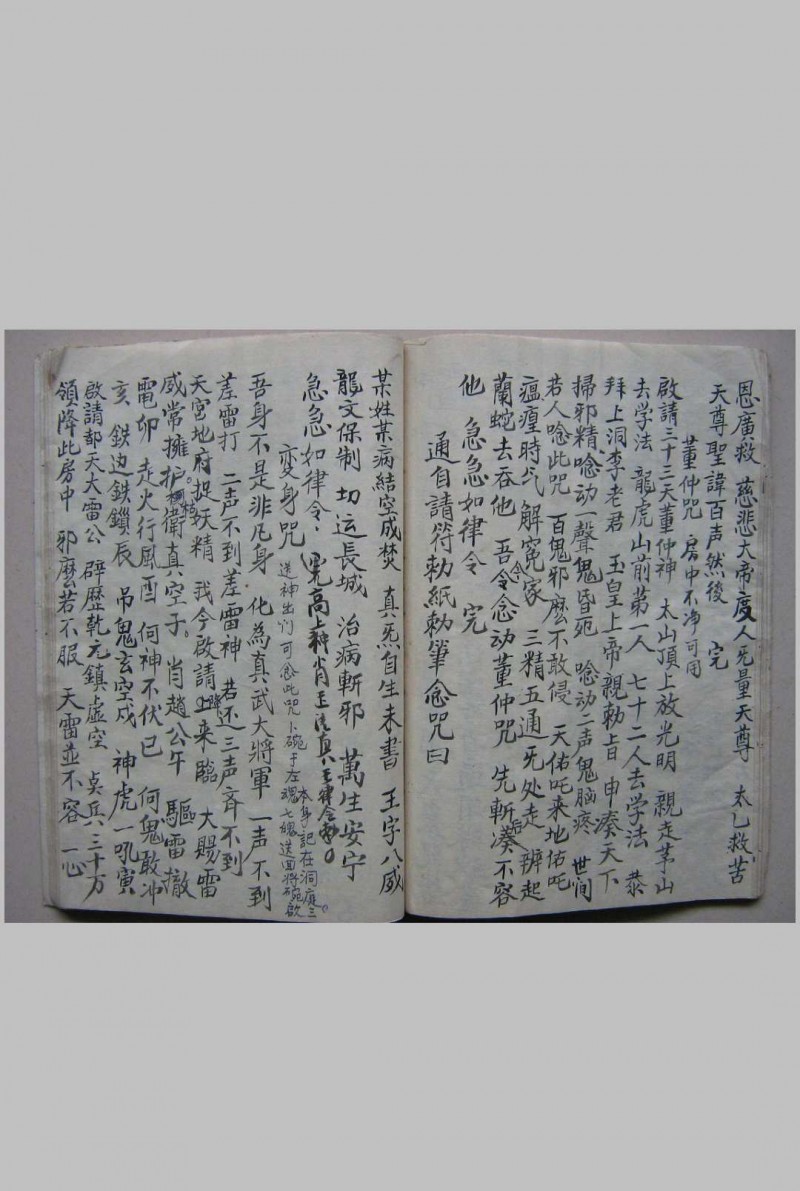 恩廣救 慈悲大帝度人无量天尊 太乙救苦
天尊聖諱百声然後 完
董仲咒 房中不净可用
啟請三十三天董仲神 太山頂上放光明 親走茅山
去学法 龍虎山前第一人 七十二人去学法 恭
拜上洞李老君 玉皇上帝親勅旨 申湊天下
掃邪精 唸动一聲鬼昏死 唸动二声鬼脑疼 世间
若人唸此咒 百鬼邪麽不敢侵 天佑吒来地佑吒
瘟瘟時气 解冤家 三精五通无处走 辨起
蘭蛇去吞他 吾令念动董仲咒 先斬 湊不容
他 急急如律令 完
通自請符勅紙勅筆念咒曰
某姓某病結空成焚 真炁自生未書 王字八威
龍文保制 切运長城 治病斬邪 萬生安宁
急急如律令 高上神肖王
变身咒 送神出门可念此咒 卜碗于左 本身記在洞
魂七魄送回将碗啟
吾身不是非凡身 化為真武大將軍 一声不到
差雷打 二声不到差雷神 若还三声斉不到
天宮地府捉妖精 我今啟請 来臨 大赐雷
威常擁护 衛真空子 肖趙公午 驅雷撤
電卯 走火行風酉 何神不伏巳 何鬼敢冲
亥 鉄边鉄鎖辰 吊鬼玄空戌 神虎一吼寅
啟請都天大雷公 辟歷乾元鎮虚空 点兵三十万
領降此房中 邪麽若不服 天雷並不容 一心